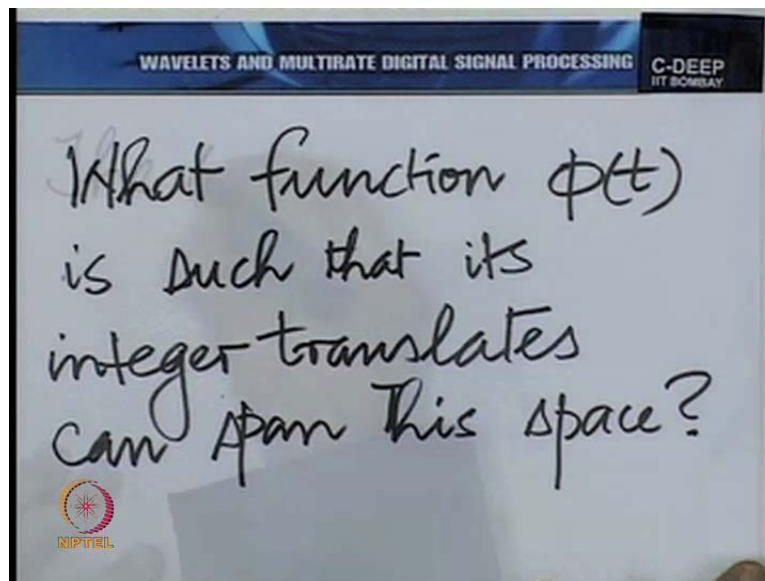 WAVELETS AND MULTIRATE DIGITAL SIGNAL PROCESSING
C-DEEP
IIT BOMBAY
What function φ(t)
is such that its
integer translates
can span this space?
NPTEL